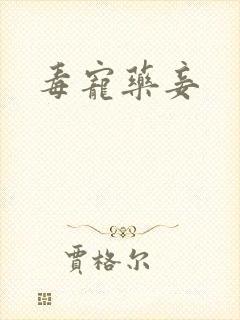 毒寵藥妾
賈格尔